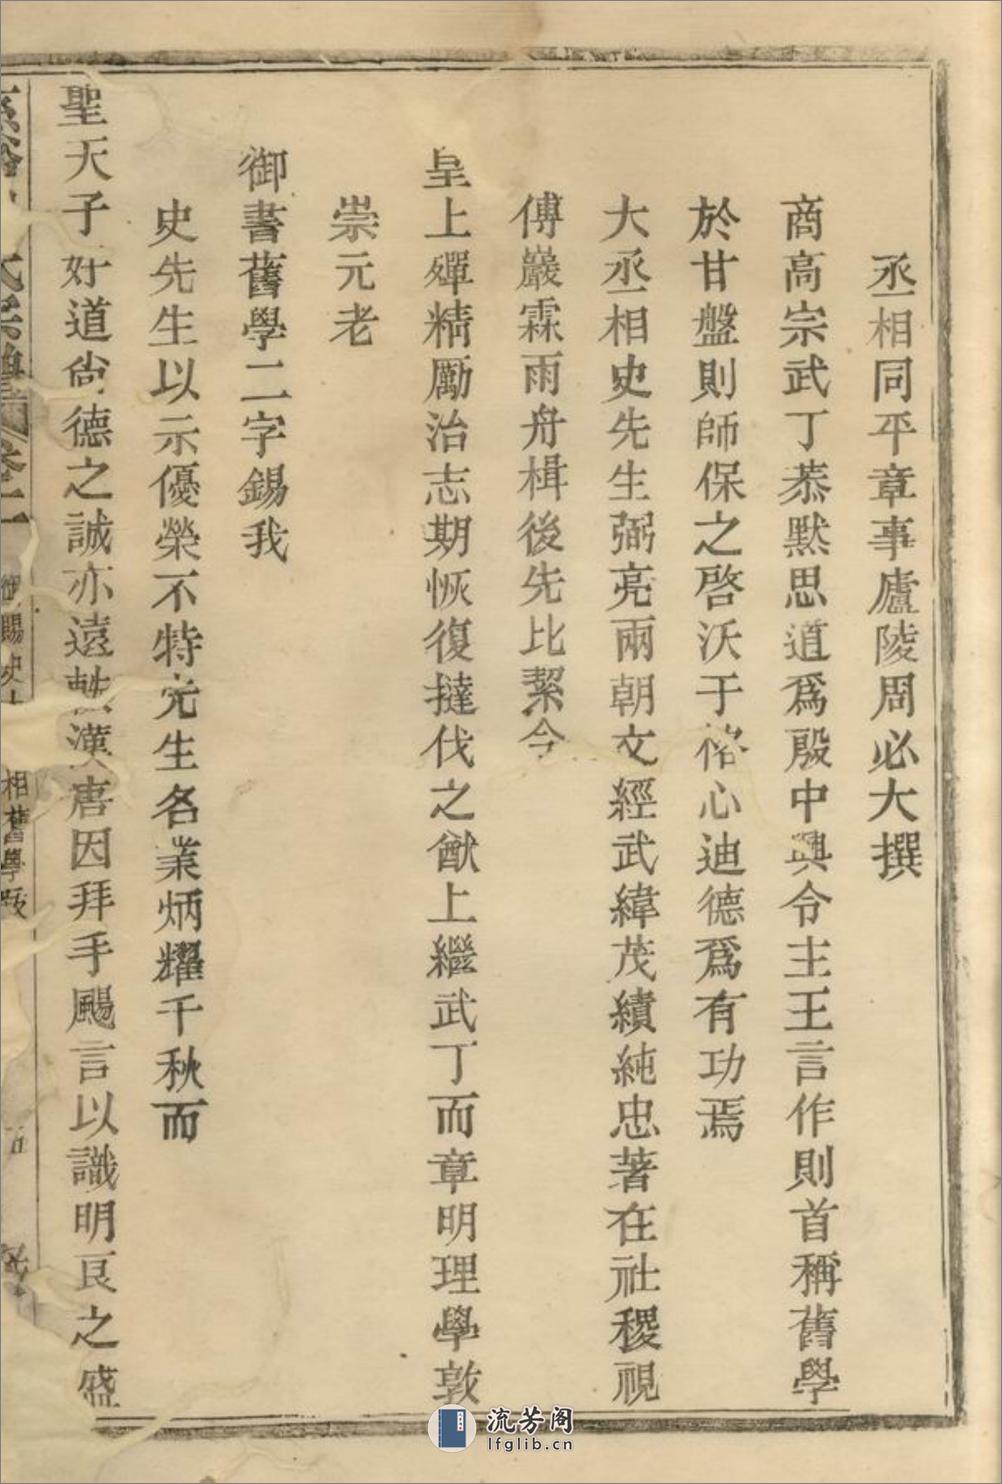 丞相同平章事廬陵周必大撰
商高宗武丁恭默思道爲殷中興令主王言作則首稱舊學
於甘盤則師保之啓沃于格心迪德爲有功焉
大丞相史先生弼亮兩朝文經武緯茂績純忠著在社稷視
傅巖霖雨舟楫後先比絜今
皇上殫精勵治志期恢復撻伐之猷上繼武丁而章明理學敦
崇元老
御書舊學二字錫我
史先生以示優榮不特先生名業炳耀千秋而
聖天子好道尙德之誠亦遠軼漢唐因拜手颺言以識明良之盛
賜史
相舊學跋
五
流芳阁
lfglib.cn